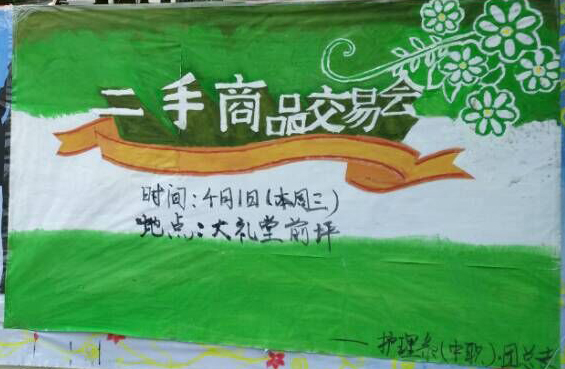 二手商品交易会
时间:4月1日(本周三)
地点:大礼堂前坪
——护理系(中职)团总支